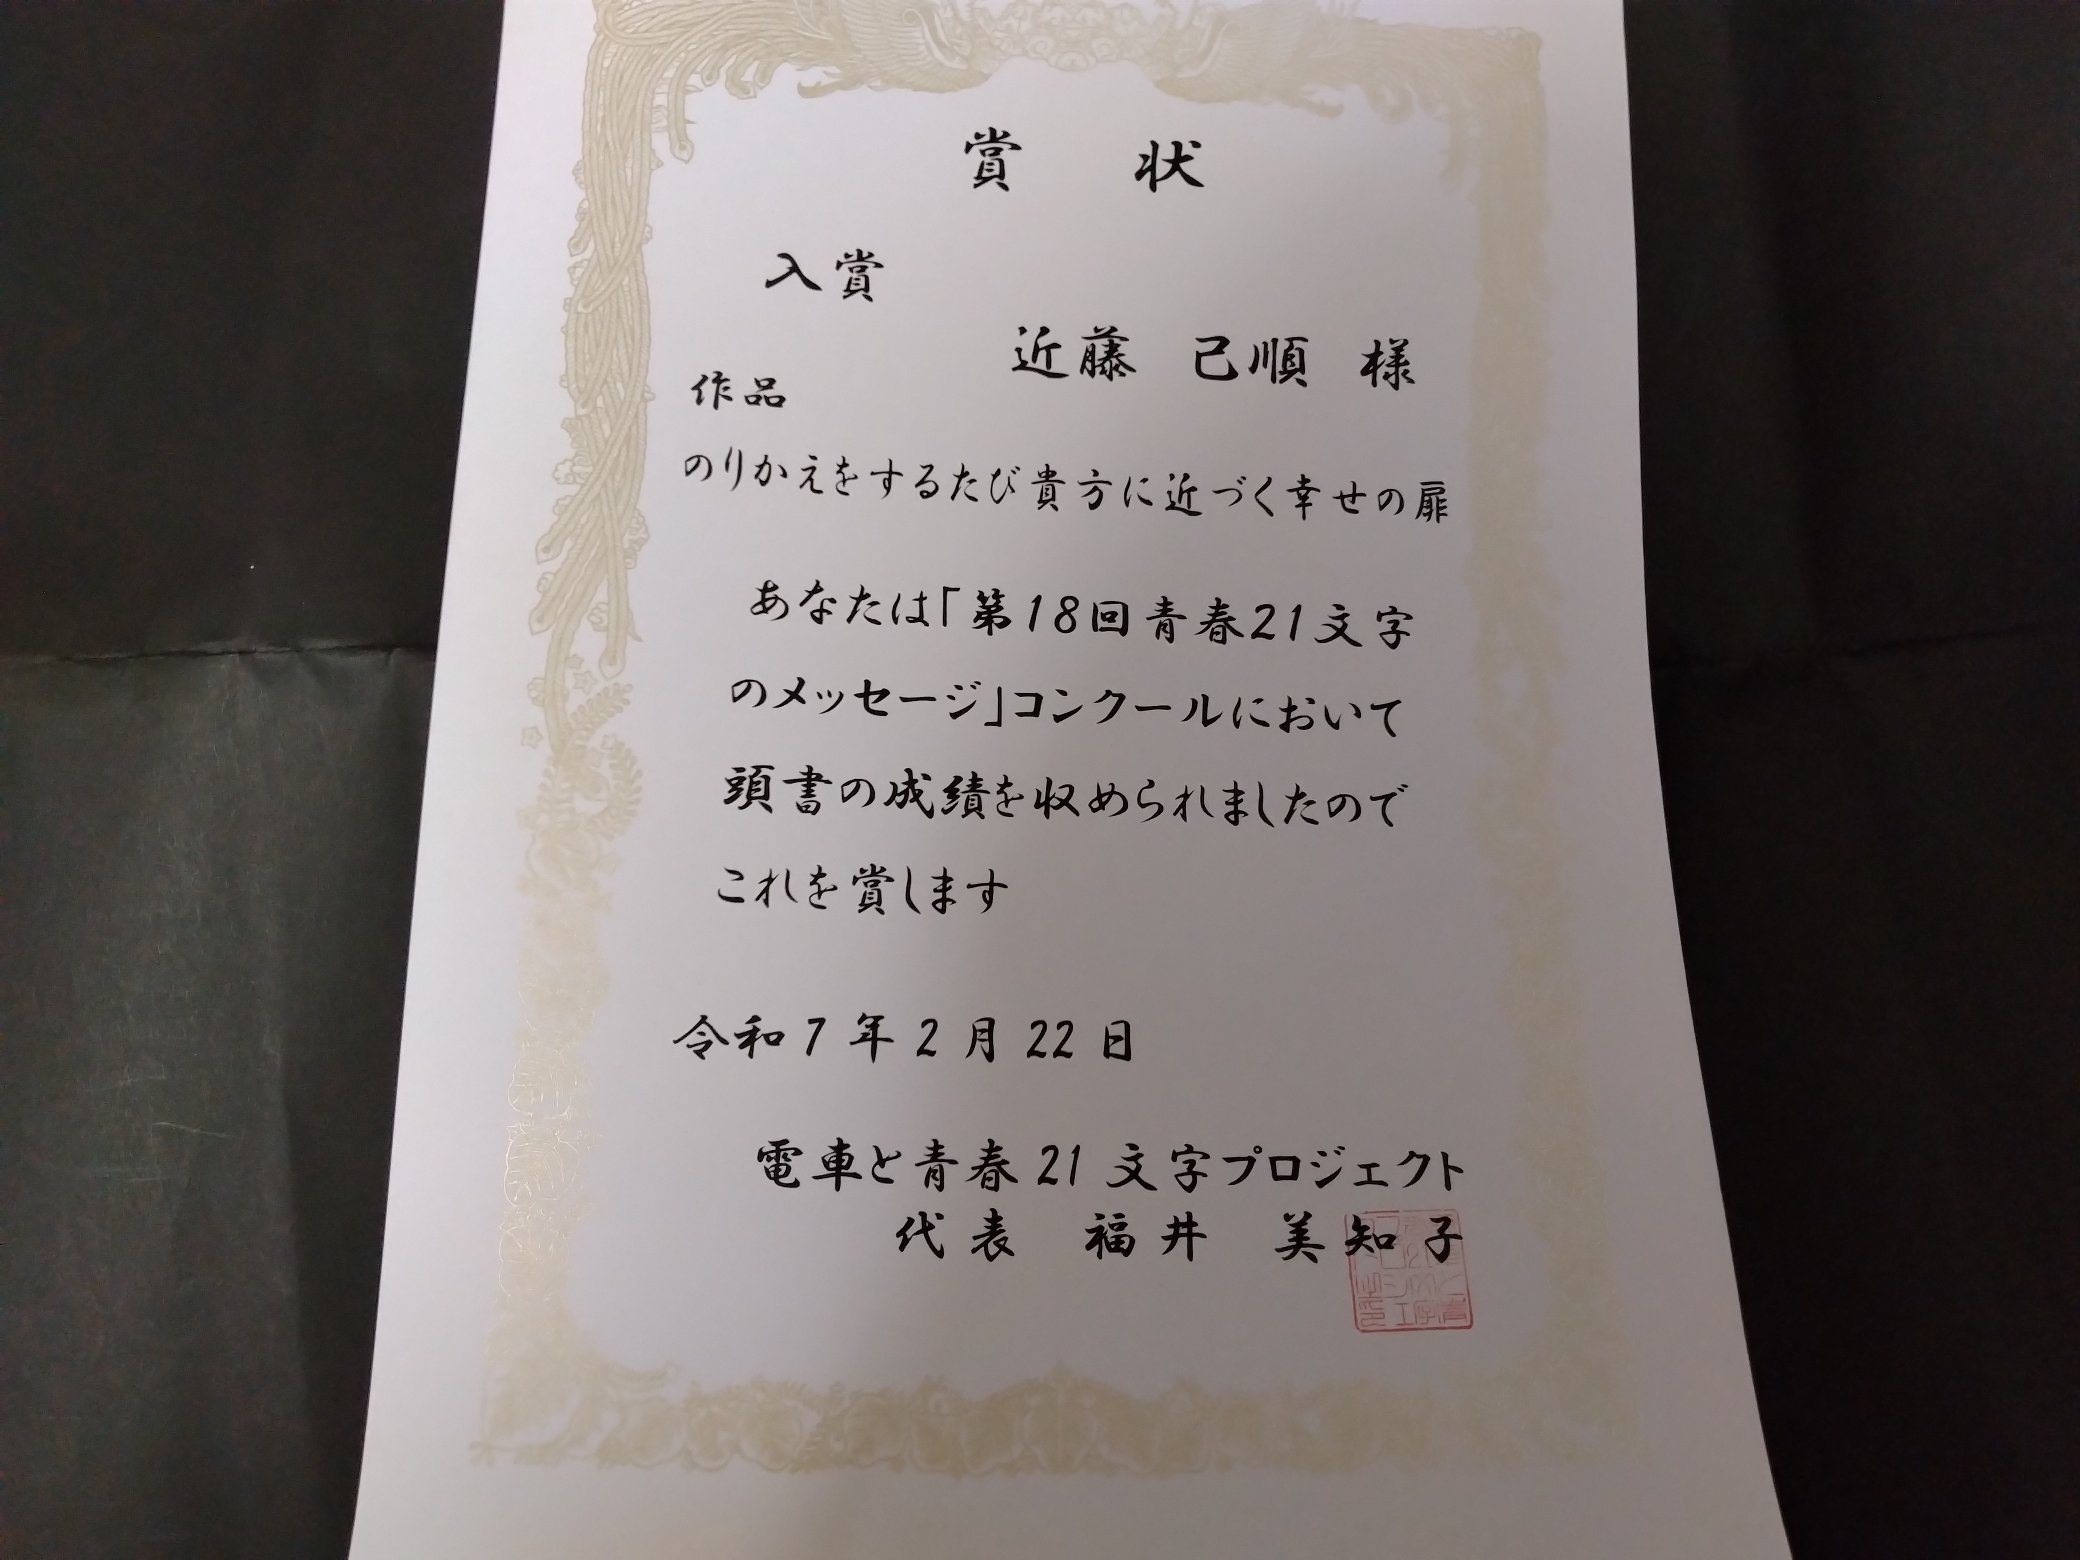 賞状
入賞
近藤 己順 様
作品
のりかえをするたび貴方に近づく幸せの扉
あなたは「第18回青春21文字
のメッセージ」コンクールにおいて
頭書の成績を収められましたので
これを賞します
令和7年2月22日
電車と青春21文字プロジェクト
代表 福井 美知子